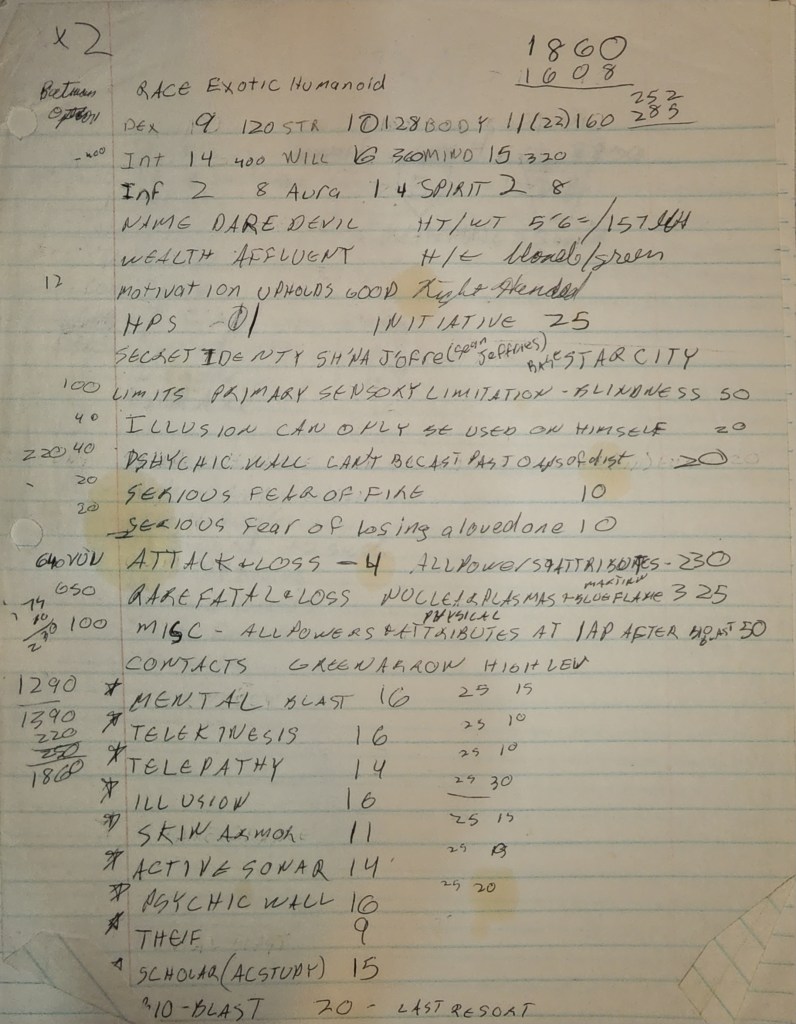 x2
1860
1608
252
285
RACE Exotic Humanoid
Batman
OPTION
DEX 9 120 STR 10 128 BODY 11 (22) 160
Int 14 400 WILL 16 360 MIND 15 320
Inf 2 8 Aura 1 4 SPIRIT 2 8
NAME DARE DEVIL HT/WT 5'6"/157
WEALTH AFFLUENT H/E blonde/green
12 MOTIVATION UPHOLDS GOOD Right Handed
HPS INITIATIVE 25
SECRET IDENTY SH'NA JOFRE (Sean Jeffries) BASE STAR CITY
100 LIMITS PRIMARY SENSORY LIMITATION - BLINDNESS 50
40 ILLUSION CAN ONLY BE USED ON HIMSELF 20
220 40 PSHYCHIC WALL CAN'T BE CAST PAST 0 aps of dist 20
20 SERIOUS FEAR OF FIRE 10
20 SERIOUS Fear of losing a loved one 10
640 VUN ATTACK & LOSS - 4 ALL POWERS & ATTRIBUTES - 230
650 RARE FATAL & LOSS NUCLEAR PLASMAS & BLUE FLAME 325
MARTIAN
PHYSICAL
100 MISC - ALL POWERS & ATTRIBUTES AT 1AP AFTER 50
CONTACTS GREEN ARROW HIGH LEV
1290 * MENTAL BLAST 16 25 15
1390 * TELEKINESIS 16 25 10
220
250
1860 * TELEPATHY 14 25 10
* ILLUSION 16 25 30
* SKIN ARMOR 11 25 15
* ACTIVE SONAR 14 25
* PSYCHIC WALL 16 25 20
* THEIF 9
* SCHOLAR (AC STUDY) 15
310 - BLAST 20 - LAST RESORT